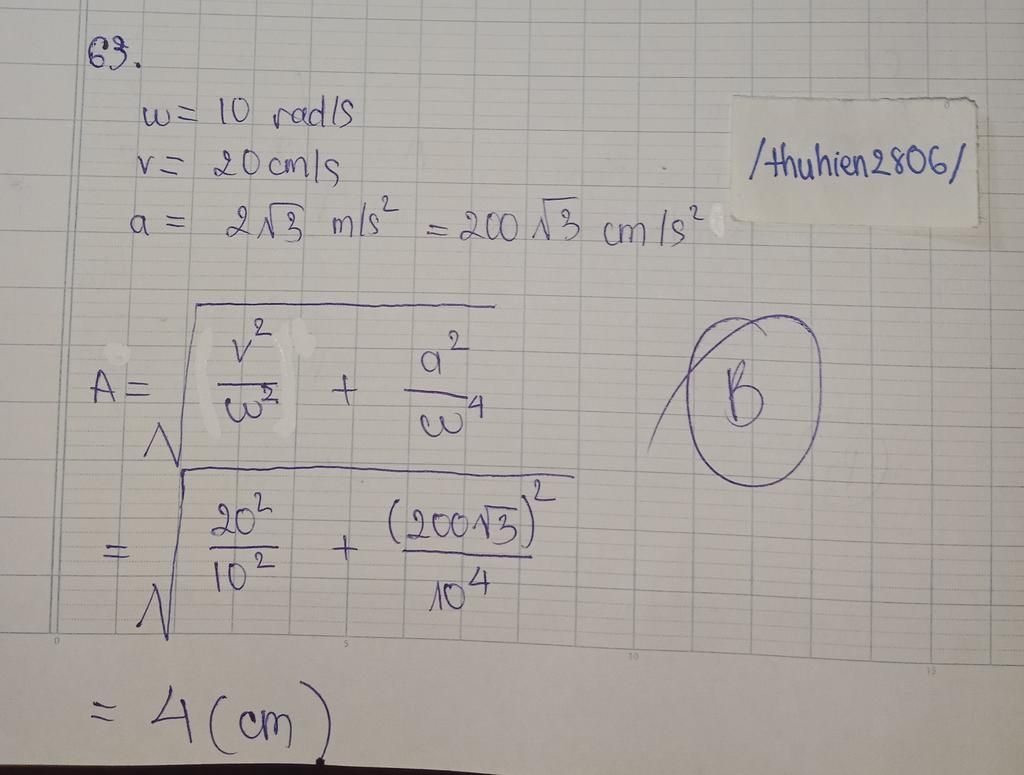 63.
ω = 10 rad/s
v = 20 cm/s
a = 2√3 m/s² = 200√3 cm/s²
/thuhien2806/
A = √(v²/ω² + a²/ω⁴)
B
= √(20²/10² + (200√3)²/10⁴)
0 5 10 15
= 4 (cm)